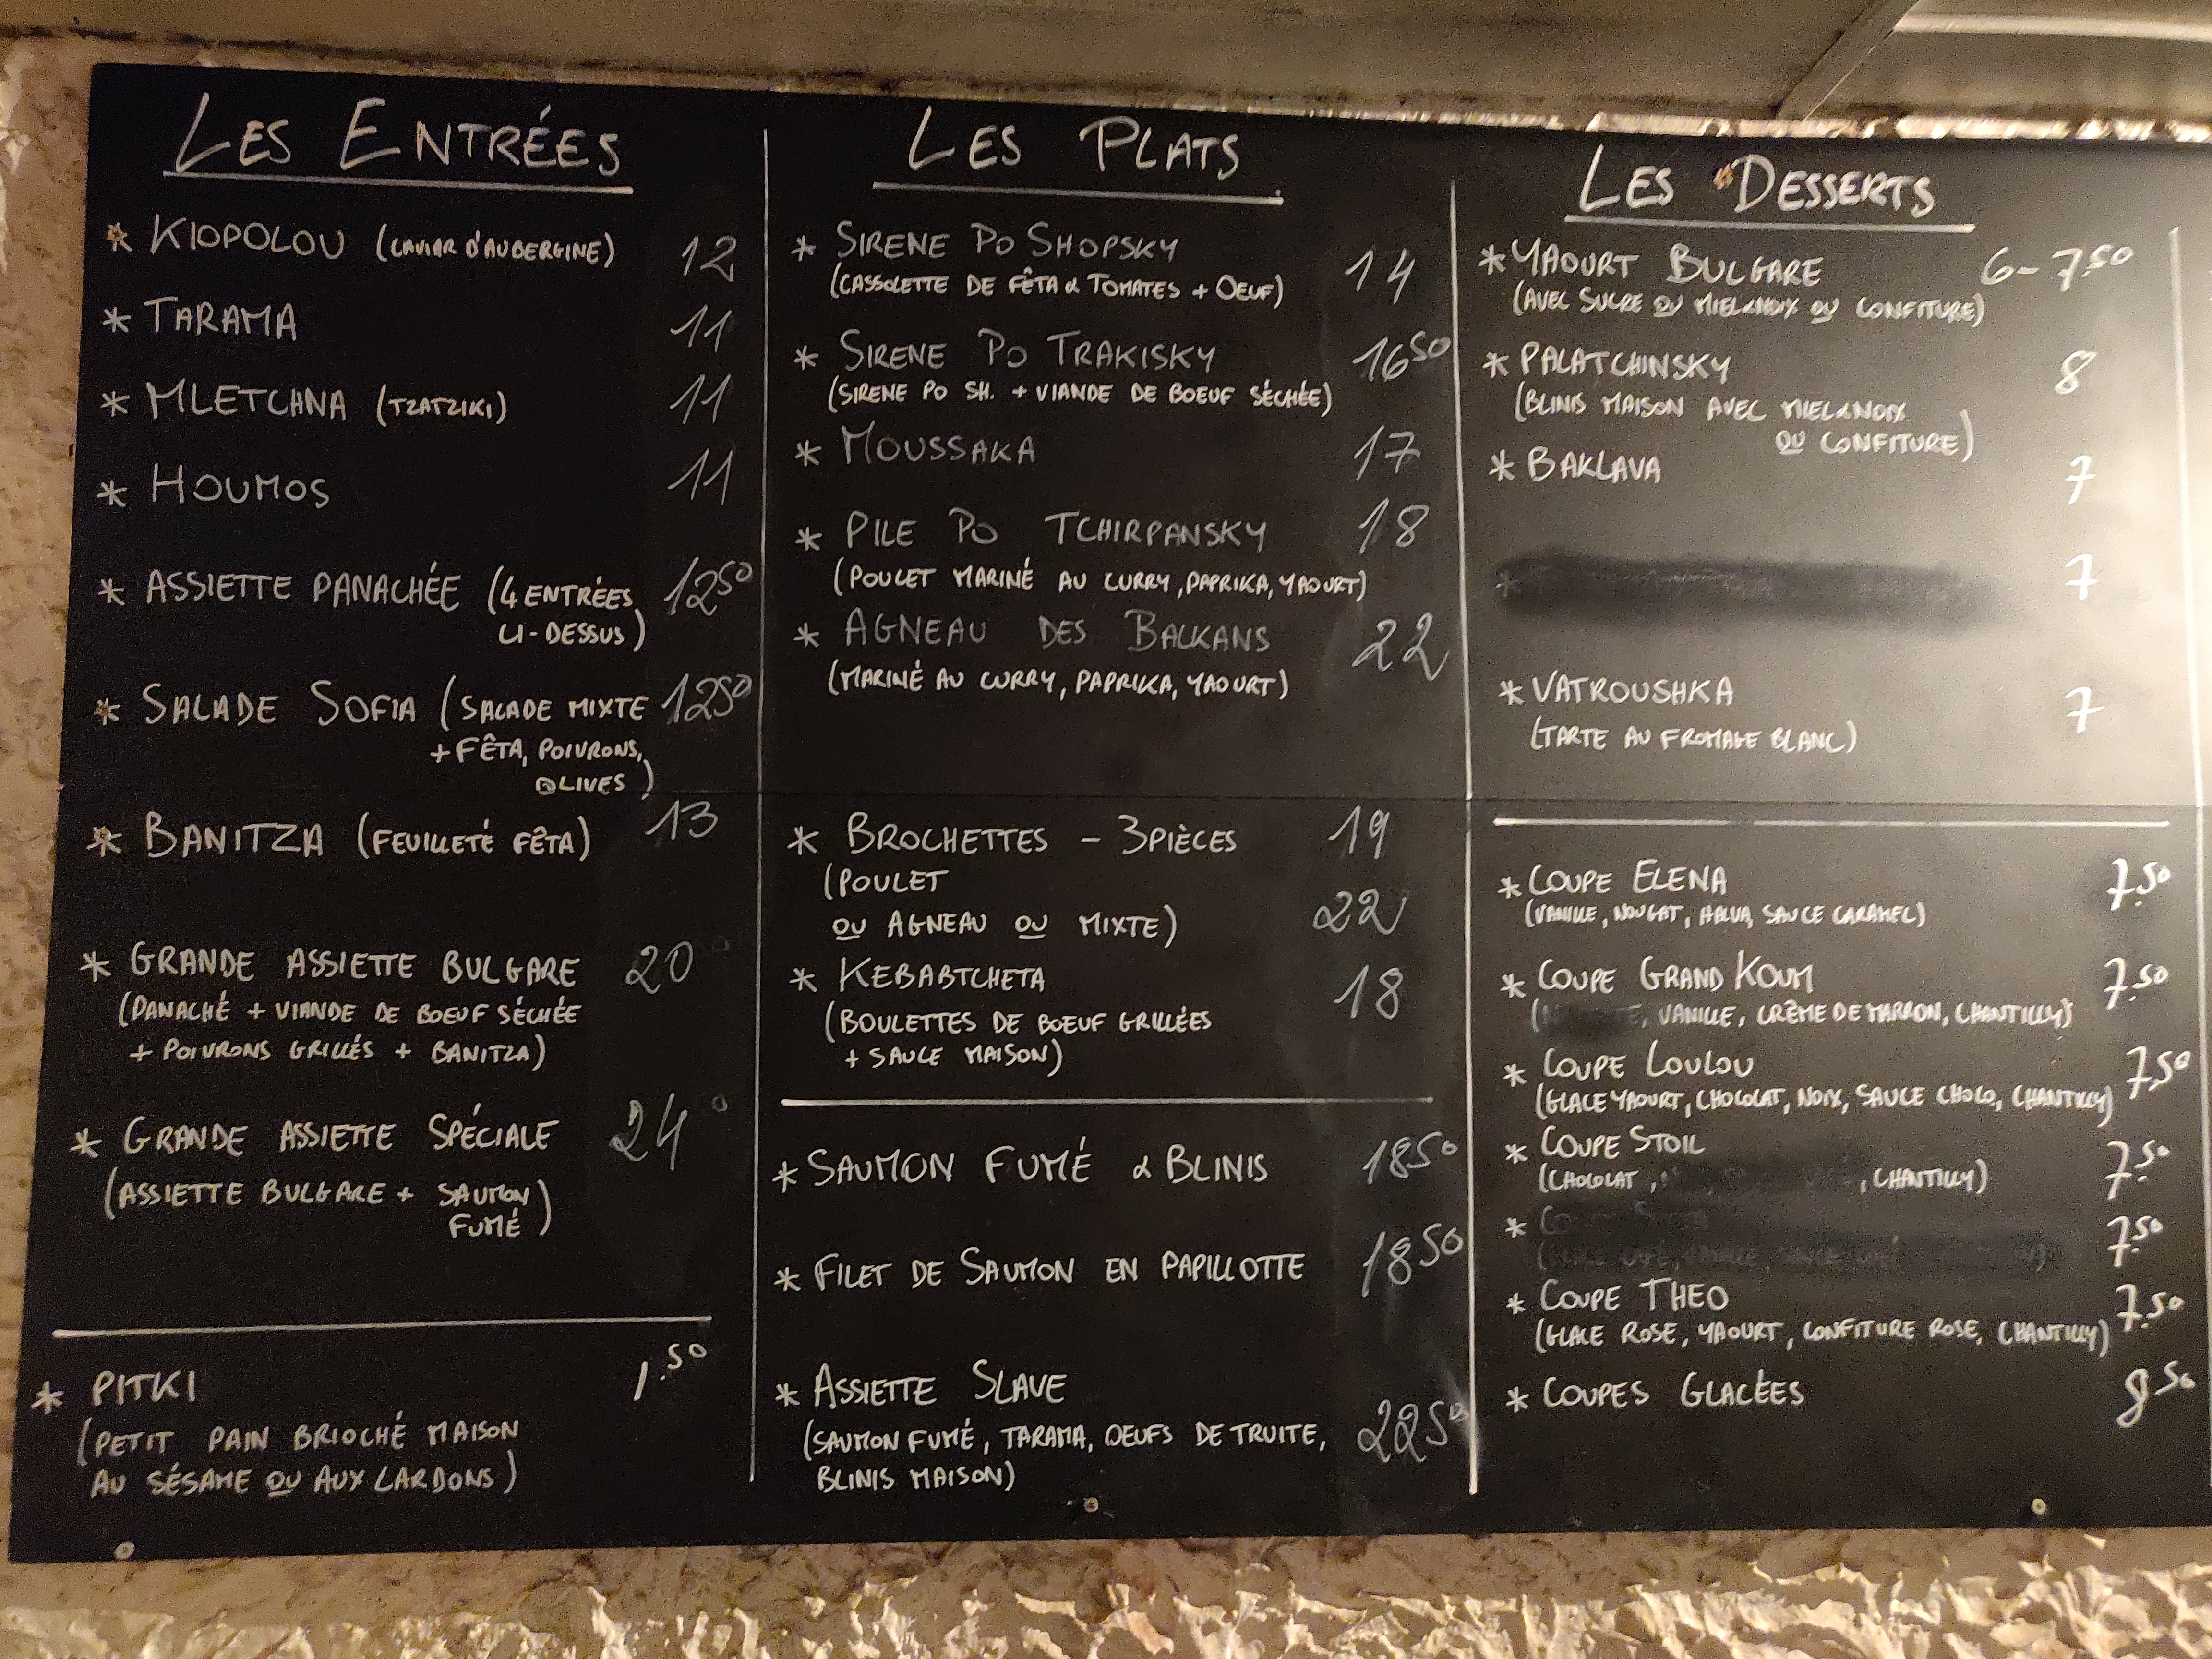 LES ENTRÉES
* KIOPOLOU (CAVIAR D'AUBERGINE) 12
* TARAMA 11
* MLETCHNA (TZATZIKI) 11
* HOUMOS 11
* ASSIETTE PANACHÉE (4 ENTRÉES 12⁵⁰
CI-DESSUS)
* SALADE SOFIA (SALADE MIXTE 12⁵⁰
+ FÊTA, POIVRONS,
OLIVES)
* BANITZA (FEUILLETÉ FÊTA) 13
* GRANDE ASSIETTE BULGARE 20
(PANACHÉ + VIANDE DE BOEUF SÉCHÉE
+ POIVRONS GRILLÉS + BANITZA)
* GRANDE ASSIETTE SPÉCIALE 24
(ASSIETTE BULGARE + SAUMON
FUMÉ)
* PITKI 1.⁵⁰
(PETIT PAIN BRIOCHÉ MAISON
AU SÉSAME OU AUX LARDONS)
LES PLATS
* SIRENE PO SHOPSKY 14
(CASSOLETTE DE FÊTA & TOMATES + OEUF)
* SIRENE PO TRAKISKY 16⁵⁰
(SIRENE PO SH. + VIANDE DE BOEUF SÉCHÉE)
* MOUSSAKA 17
* PILE PO TCHIRPANSKY 18
(POULET MARINÉ AU CURRY, PAPRIKA, YAOURT)
* AGNEAU DES BALKANS 22
(MARINÉ AU CURRY, PAPRIKA, YAOURT)
* BROCHETTES - 3 PIÈCES 19
(POULET
OU AGNEAU OU MIXTE) 22
* KEBABTCHETA 18
(BOULETTES DE BOEUF GRILLÉES
+ SAUCE MAISON)
* SAUMON FUMÉ & BLINIS 18⁵⁰
* FILET DE SAUMON EN PAPILLOTTE 18⁵⁰
* ASSIETTE SLAVE
(SAUMON FUMÉ, TARAMA, OEUFS DE TRUITE, 22⁵⁰
BLINIS MAISON)
LES DESSERTS
* YAOURT BULGARE 6-7.⁵⁰
(AVEC SUCRE OU MIEL & NOIX OU CONFITURE)
* PALATCHINSKY 8
(BLINIS MAISON AVEC MIEL & NOIX
OU CONFITURE)
* BAKLAVA 7
* 7
* VATROUSHKA 7
(TARTE AU FROMAGE BLANC)
* COUPE ELENA 7.⁵⁰
(VANILLE, NOUGAT, HALVA, SAUCE CARAMEL)
* COUPE GRAND KOUM 7.⁵⁰
VANILLE, CRÈME DE MARRON, CHANTILLY)
* COUPE LOULOU 7.⁵⁰
(GLACE YAOURT, CHOCOLAT, NOIX, SAUCE CHOCO, CHANTILLY)
* COUPE STOIL 7.⁵⁰
(CHOCOLAT, , CHANTILLY)
* 7.⁵⁰
* COUPE THEO 7.⁵⁰
(GLACE ROSE, YAOURT, CONFITURE ROSE, CHANTILLY)
* COUPES GLACÉES 8⁵⁰